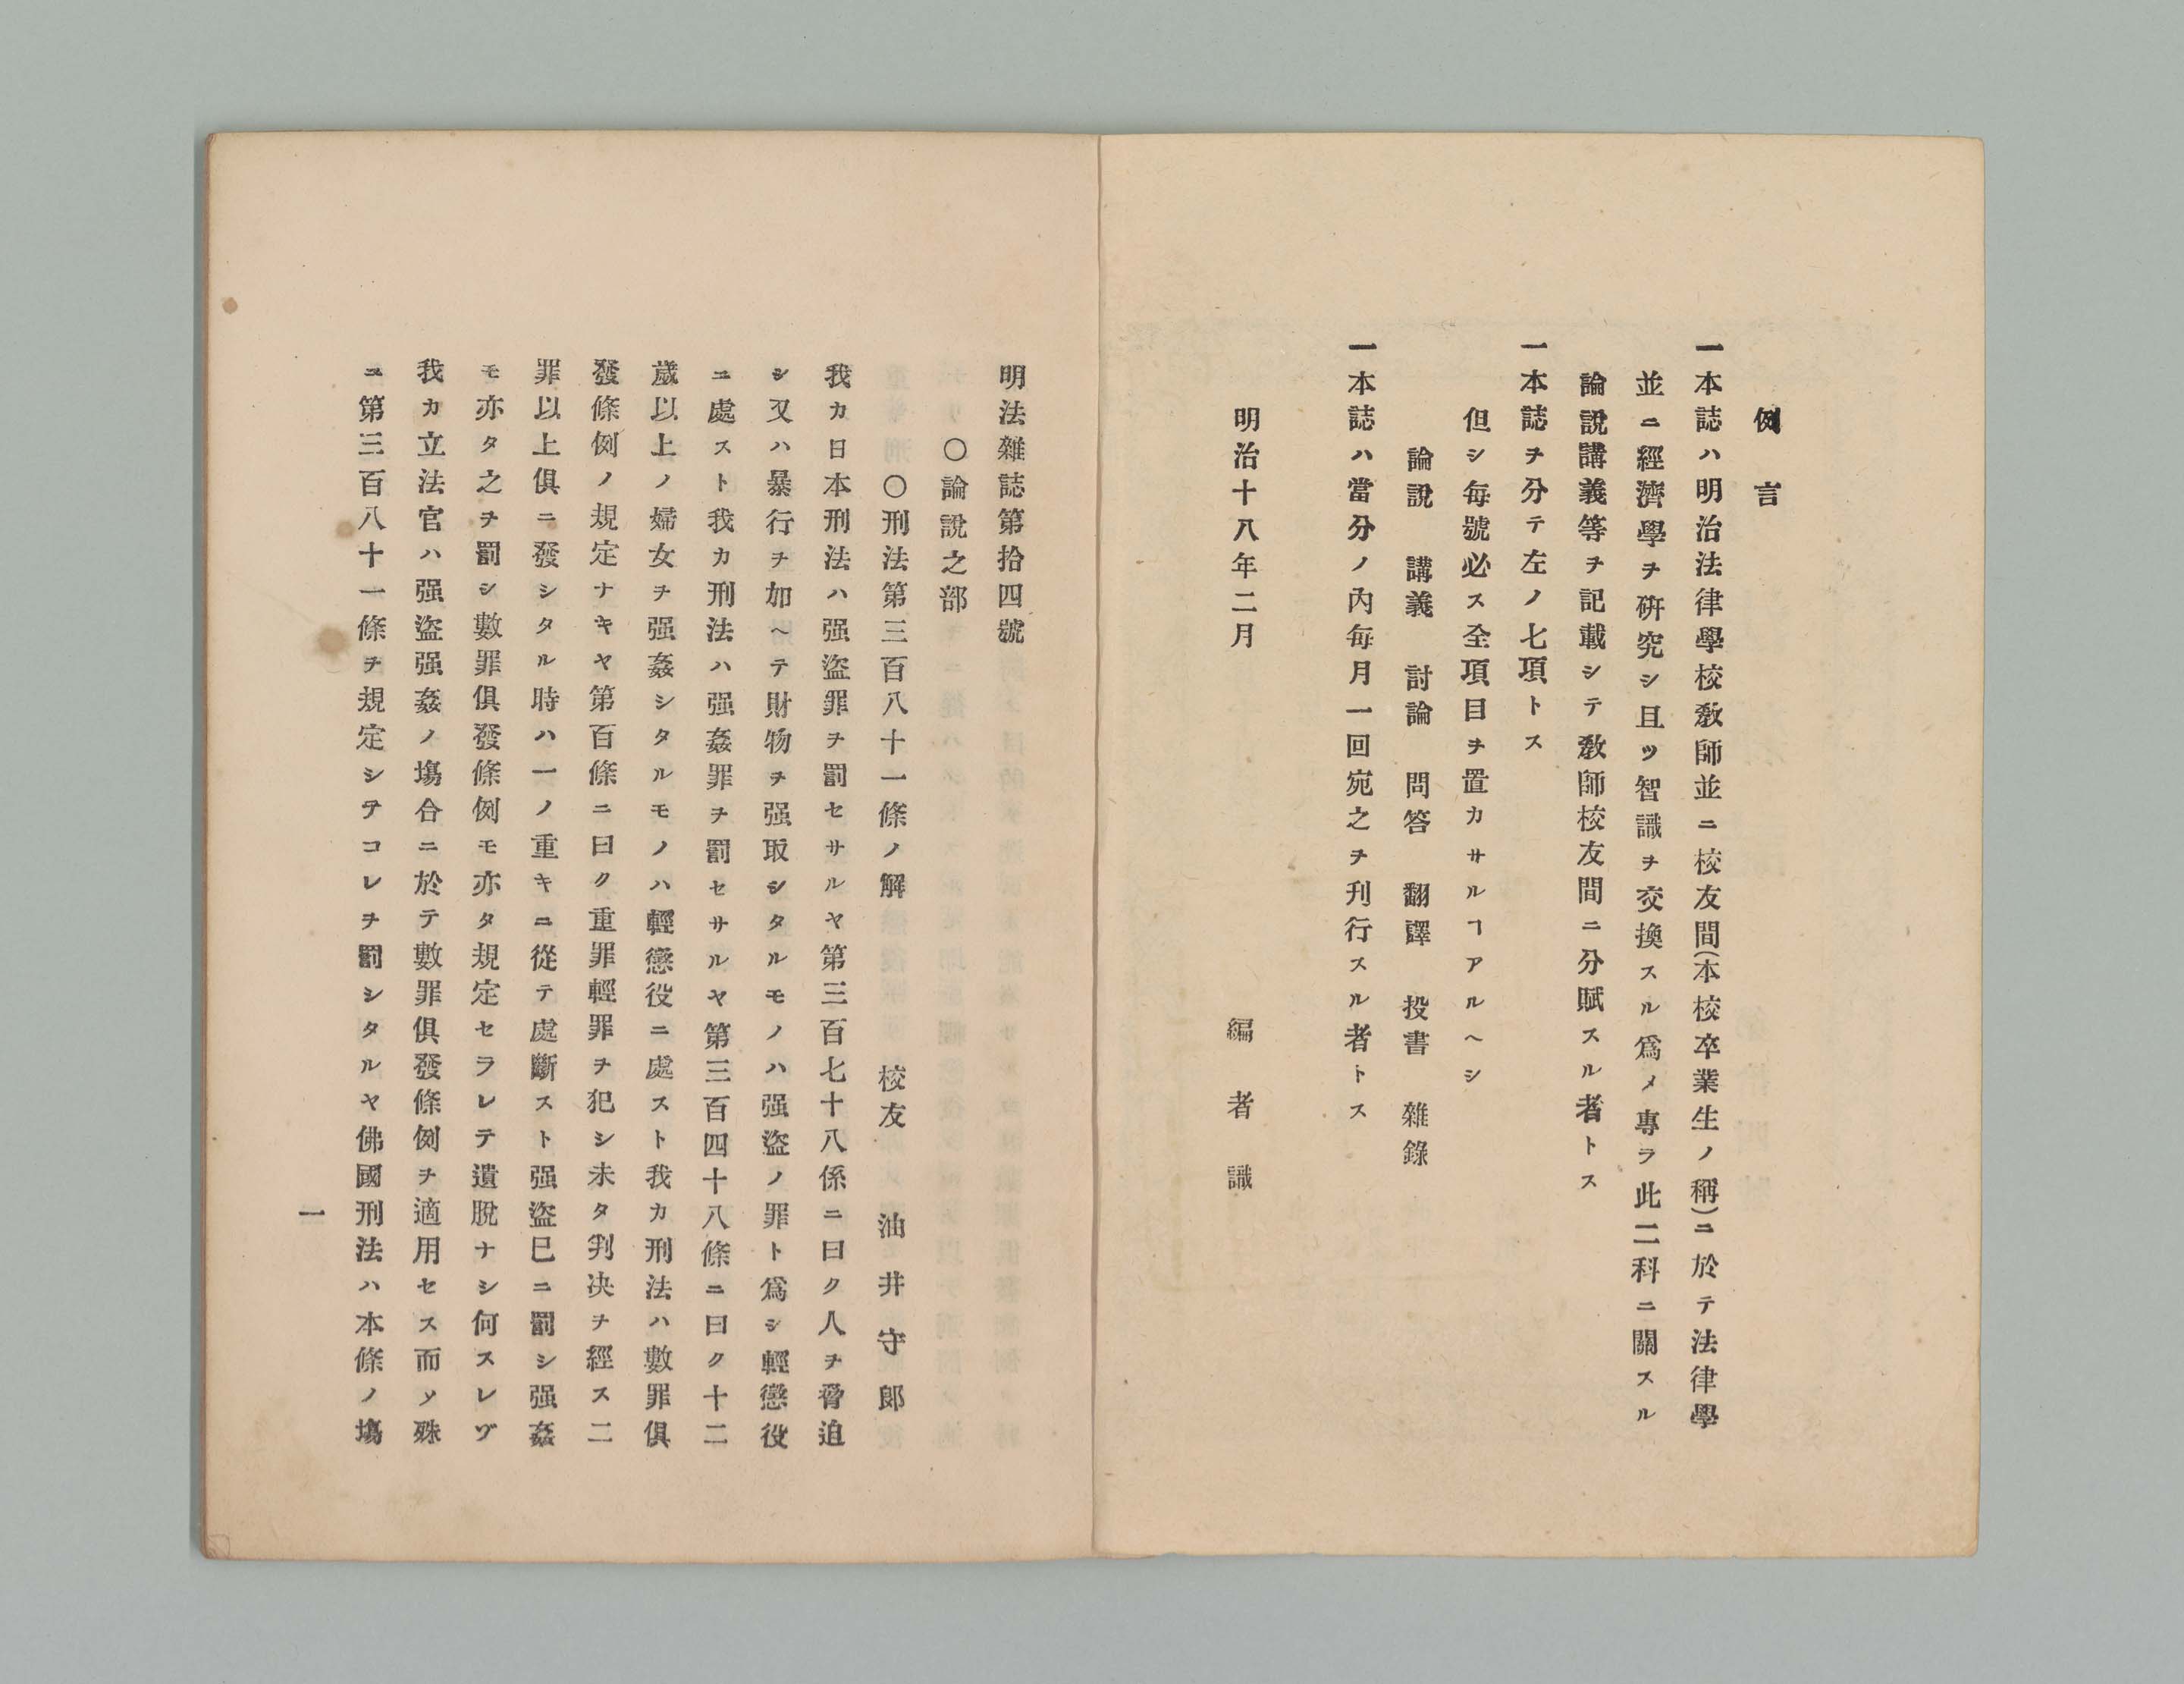 例言
一本誌ハ明治法律學校教師並ニ校友間(本校卒業生ノ稱)ニ於テ法律學
並ニ經濟學ヲ硏究シ且ツ智識ヲ交換スル爲メ專ラ此二科ニ關スル
論說講義等ヲ記載シテ敎師校友間ニ分賦スル者トス
一本誌ヲ分テ左ノ七項トス
但シ每號必ス全項目ヲ置カサルヿアルヘシ
論說　講義　討論　問答　翻譯　投書　雜錄
一本誌ハ當分ノ內每月一回宛之ヲ刋行スル者トス
明治十八年二月
編者識
明法雜誌第拾四號
〇論說之部
〇刑法第三百八十一條ノ解　校友　油井守郞
我カ日本刑法ハ强盜罪ヲ罰セサルヤ第三百七十八係ニ曰ク人ヲ脅迫
シ又ハ暴行ヲ加ヘテ財物ヲ强取シタルモノハ强盜ノ罪ト爲シ輕懲役
ニ處スト我カ刑法ハ强姦罪ヲ罰セサルヤ第三百四十八條ニ曰ク十二
歲以上ノ婦女ヲ强姦シタルモノハ輕懲役ニ處スト我カ刑法ハ數罪俱
發條例ノ規定ナキヤ第百條ニ曰ク重罪輕罪ヲ犯シ未タ判决ヲ經ス二
罪以上俱ニ發シタル時ハ一ノ重キニ從テ處斷スト强盜巳ニ罰シ强姦
モ亦タ之ヲ罰シ數罪俱發條例モ亦タ規定セラレテ遺脫ナシ何スレヅ
我カ立法官ハ强盜强姦ノ塲合ニ於テ數罪俱發條例ヲ適用セス而ソ殊
ニ第三百八十一條ヲ規定シテコレヲ罰シタルヤ佛國刑法ハ本條ノ塲
一